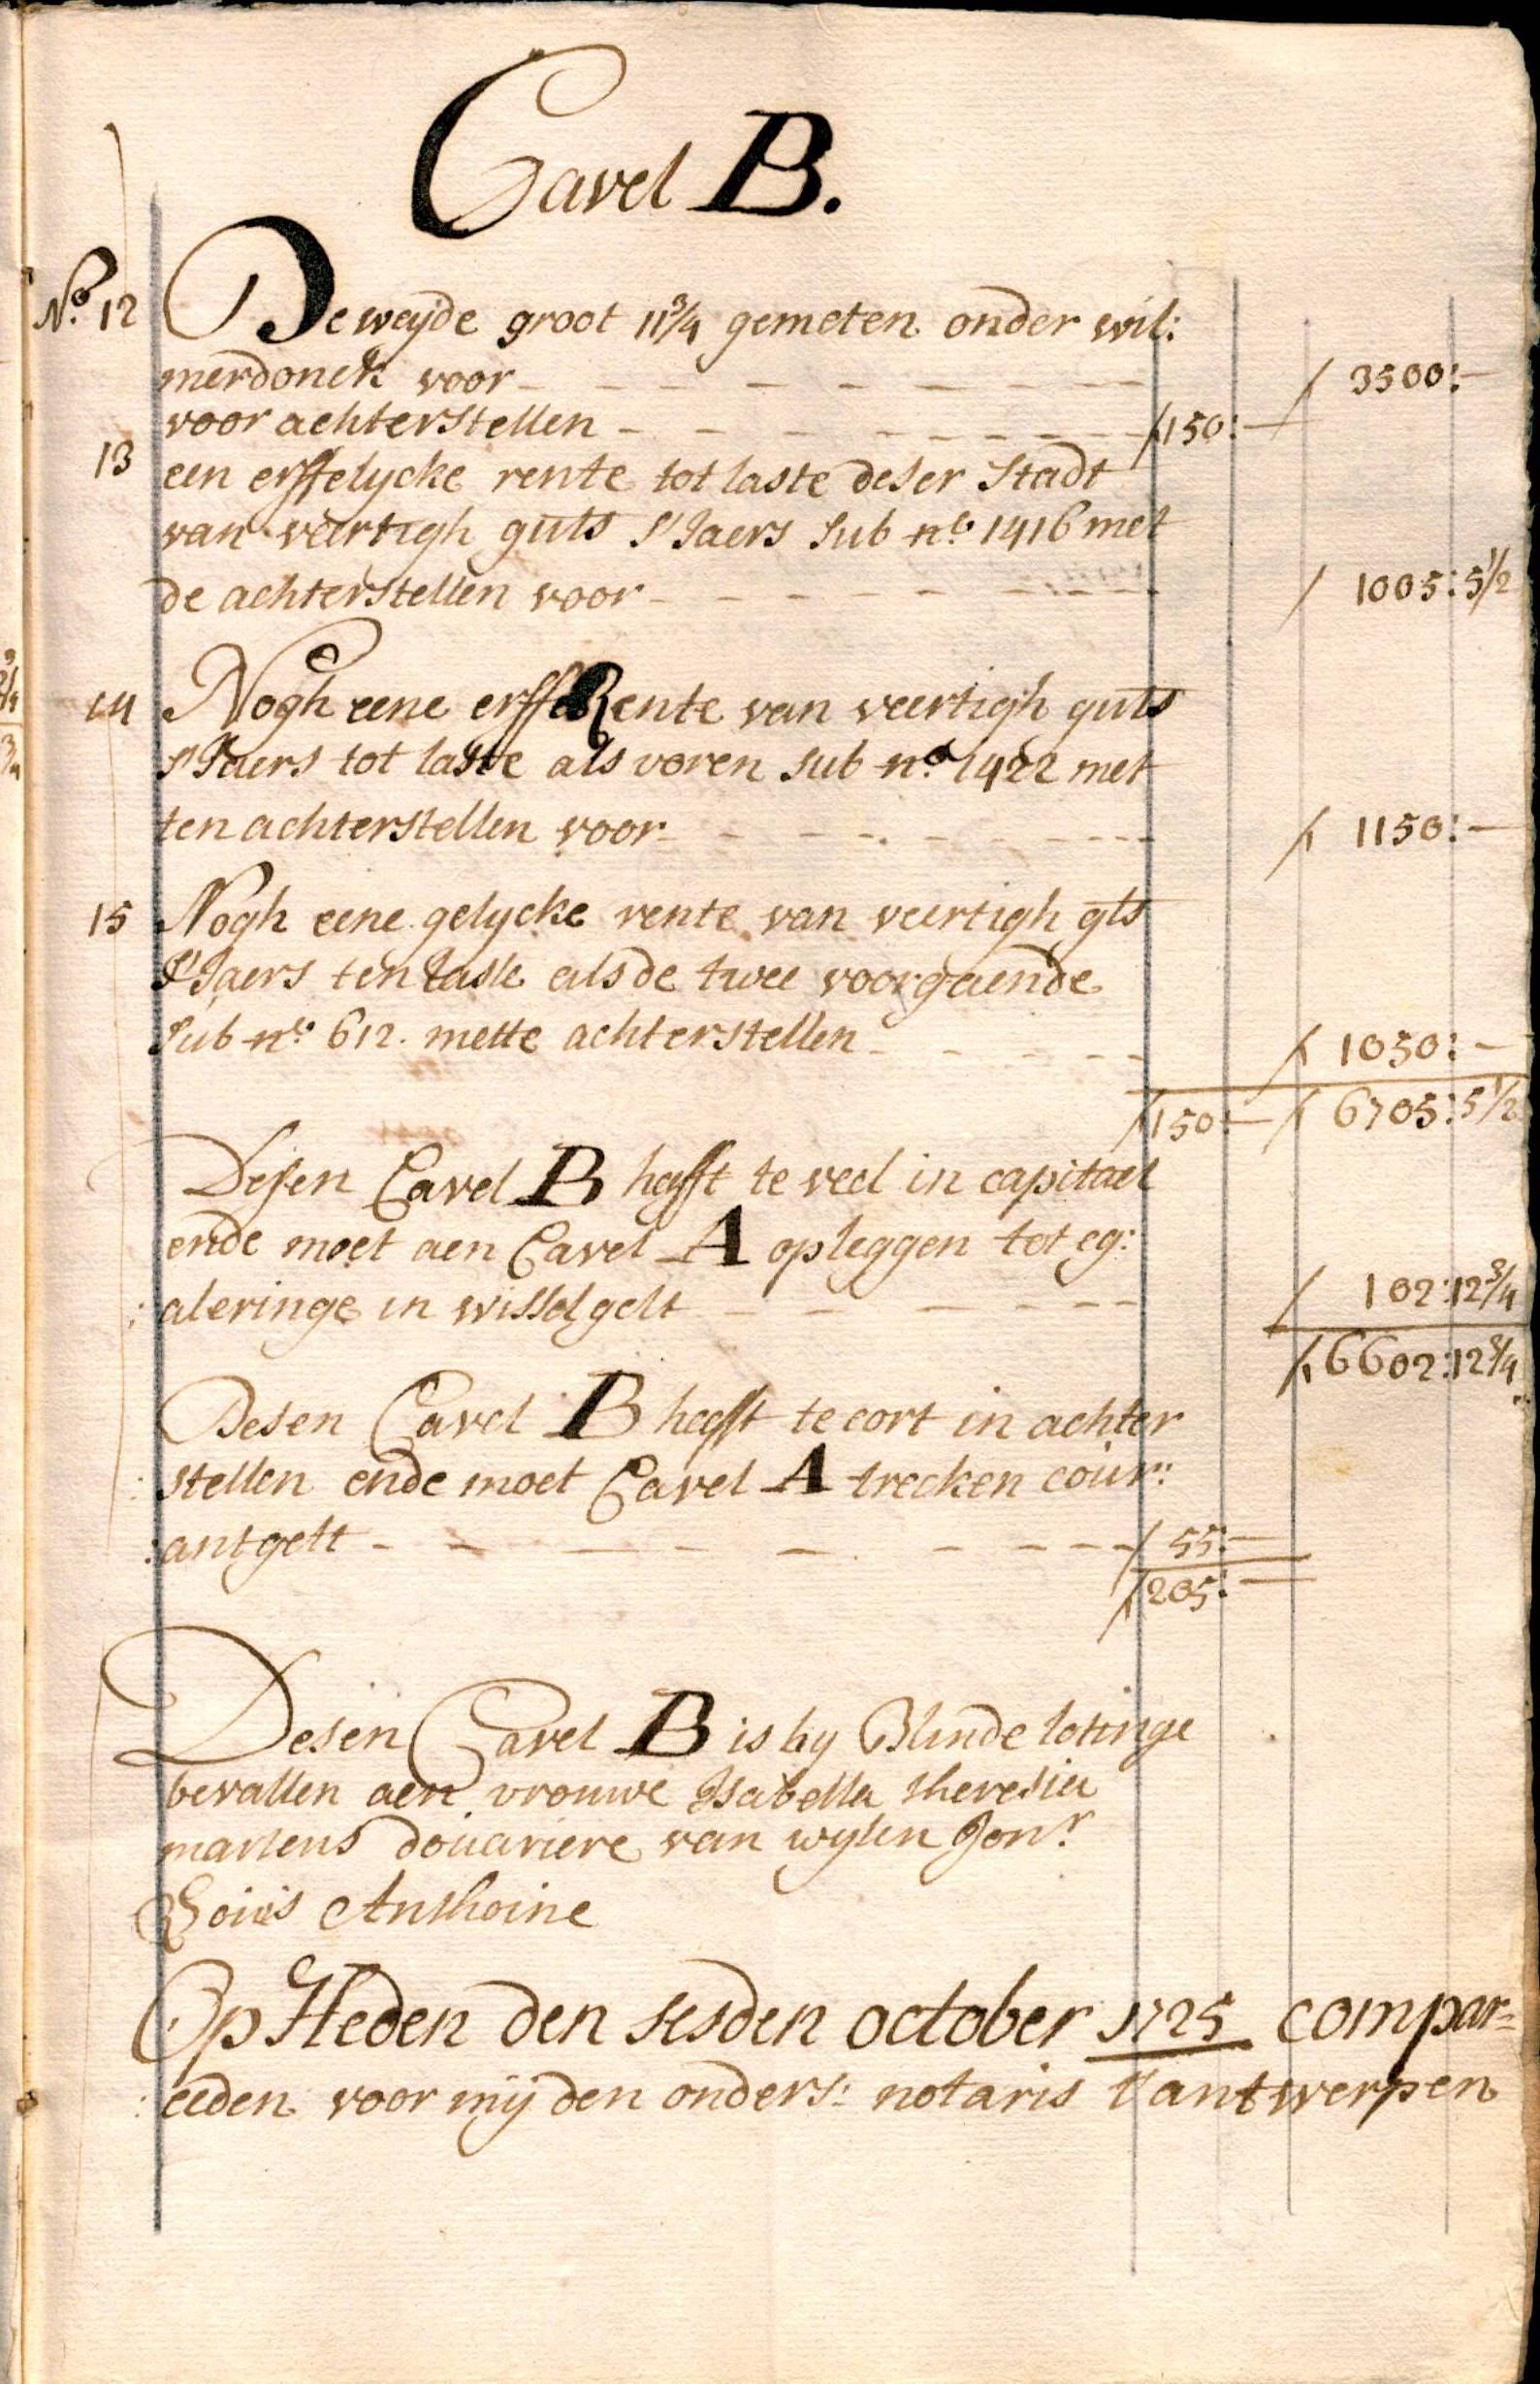 Cavel B.
No. 12 De weyde groot 11 3/4 gemeten onder wil:
merdonck voor - - - - - - - - / 3500:-
voor achterstellen - - - - - - - - / 150:-
13 een erffelycke rente tot laste deser Stadt
van veertigh guls s'Jaers sub no. 1416 met
de achterstellen voor - - - - - - - - / 1005:5 1/2
14 Nogh eene erffe Rente van veertigh guls
s'Jaers tot laste als voren sub no. 1422 met
ten achterstellen voor - - - - - - - / 1150:-
15 Nogh eene gelycke rente van veertigh gls
s'Jaers ten laste als de twee voorgaende
sub no. 612. mette achterstellen - - - - - / 1050:-
/ 150:- / 6705:5 1/2
Desen Cavel B hefft te veel in capitael
ende moet aen Cavel A opleggen tot eg:
:aleringe in wisselgelt - - - - - - / 102:12 3/4
/ 6602:12 3/4
Desen Cavel B hefft te cort in achter
:stellen ende moet Cavel A trecken cour:
:antgelt - - - - - - - - / 55:-
/ 205:-
Desen Cavel B is by Blinde lotinge
bevallen aen vrouwe Isabella theresia
martens douariere van wylen Jonr
Louis Anthoine
Op Heden den sesden october 1725 compar=
:eeden voor mij den onders: notaris t'antwerpen